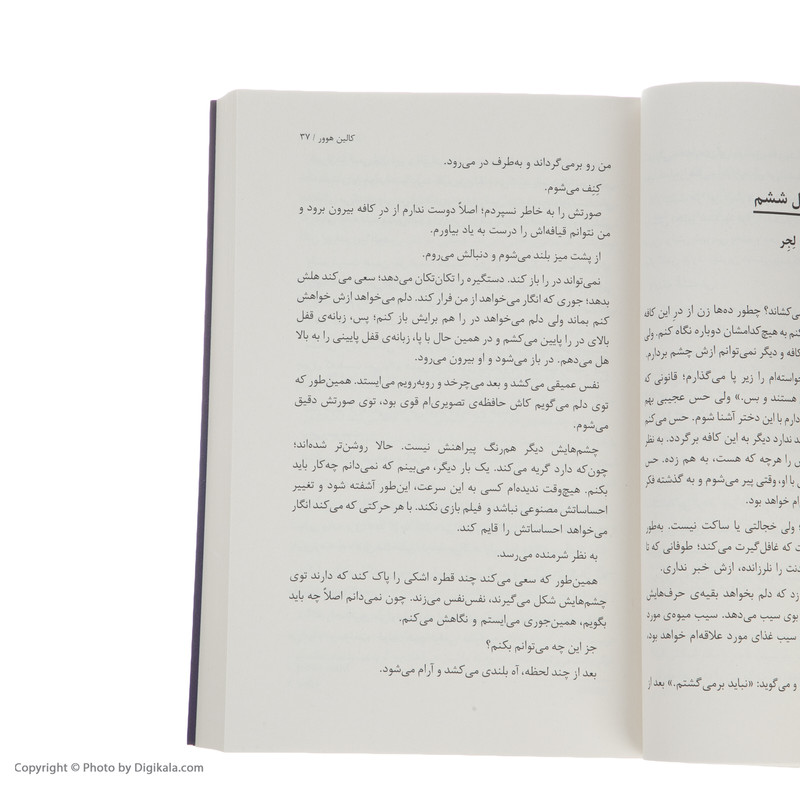 ل ششم
لجر
ی‌کشاند؟ چطور ده‌ها زن از درِ این کافه
کنم به هیچ‌کدامشان دوباره نگاه کنم. ولی
کافه و دیگر نمی‌توانم ازش چشم بردارم.
خواسته‌ام را زیر پا می‌گذارم؛ قانونی که
هستند و بس.» ولی حس عجیبی بهم
دارم با این دختر آشنا شوم. حس می‌کنم
ند ندارد دیگر به این کافه برگردد. به نظر
را هرچه که هست، به هم زده. حس
با او، وقتی پیر می‌شوم و به گذشته فکر
ام خواهد بود.
؛ ولی خجالتی یا ساکت نیست. به‌طور
ت که غافل‌گیرت می‌کند؛ طوفانی که تا
دنت را نلرزانده، ازش خبر نداری.
زد که دلم بخواهد بقیه‌ی حرف‌هایش
بوی سیب می‌دهد. سیب میوه‌ی مورد
سیب غذای مورد علاقه‌ام خواهد بود.
و می‌گوید: «نباید برمی‌گشتم.» بعد از
کالین هوور / ۳۷
من رو برمی‌گرداند و به‌طرف در می‌رود.
کِنِف می‌شوم.
صورتش را به خاطر نسپردم؛ اصلاً دوست ندارم از درِ کافه بیرون برود و
من نتوانم قیافه‌اش را درست به یاد بیاورم.
از پشت میز بلند می‌شوم و دنبالش می‌روم.
نمی‌تواند در را باز کند. دستگیره را تکان‌تکان می‌دهد؛ سعی می‌کند هلش
بدهد؛ جوری که انگار می‌خواهد از من فرار کند. دلم می‌خواهد ازش خواهش
کنم بماند ولی دلم می‌خواهد در را هم برایش باز کنم؛ پس، زبانه‌ی قفل
بالای در را پایین می‌کشم و در همین حال با پا، زبانه‌ی قفل پایینی را به بالا
هل می‌دهم. در باز می‌شود و او بیرون می‌رود.
نفس عمیقی می‌کشد و بعد می‌چرخد و روبه‌رویم می‌ایستد. همین‌طور که
توی دلم می‌گویم کاش حافظه‌ی تصویری‌ام قوی بود، توی صورتش دقیق
می‌شوم.
چشم‌هایش دیگر هم‌رنگ پیراهنش نیست. حالا روشن‌تر شده‌اند؛
چون‌که دارد گریه می‌کند. یک بار دیگر، می‌بینم که نمی‌دانم چه‌کار باید
بکنم. هیچ‌وقت ندیده‌ام کسی به این سرعت، این‌طور آشفته شود و تغییر
احساساتش مصنوعی نباشد و فیلم بازی نکند. با هر حرکتی که می‌کند انگار
می‌خواهد احساساتش را قایم کند.
به نظر شرمنده می‌رسد.
همین‌طور که سعی می‌کند چند قطره اشکی را پاک کند که دارند توی
چشم‌هایش شکل می‌گیرند، نفس‌نفس می‌زند. چون نمی‌دانم اصلاً چه باید
بگویم، همین‌جوری می‌ایستم و نگاهش می‌کنم.
جز این چه می‌توانم بکنم؟
بعد از چند لحظه، آه بلندی می‌کشد و آرام می‌شود.
Copyright © Photo by Digikala.com